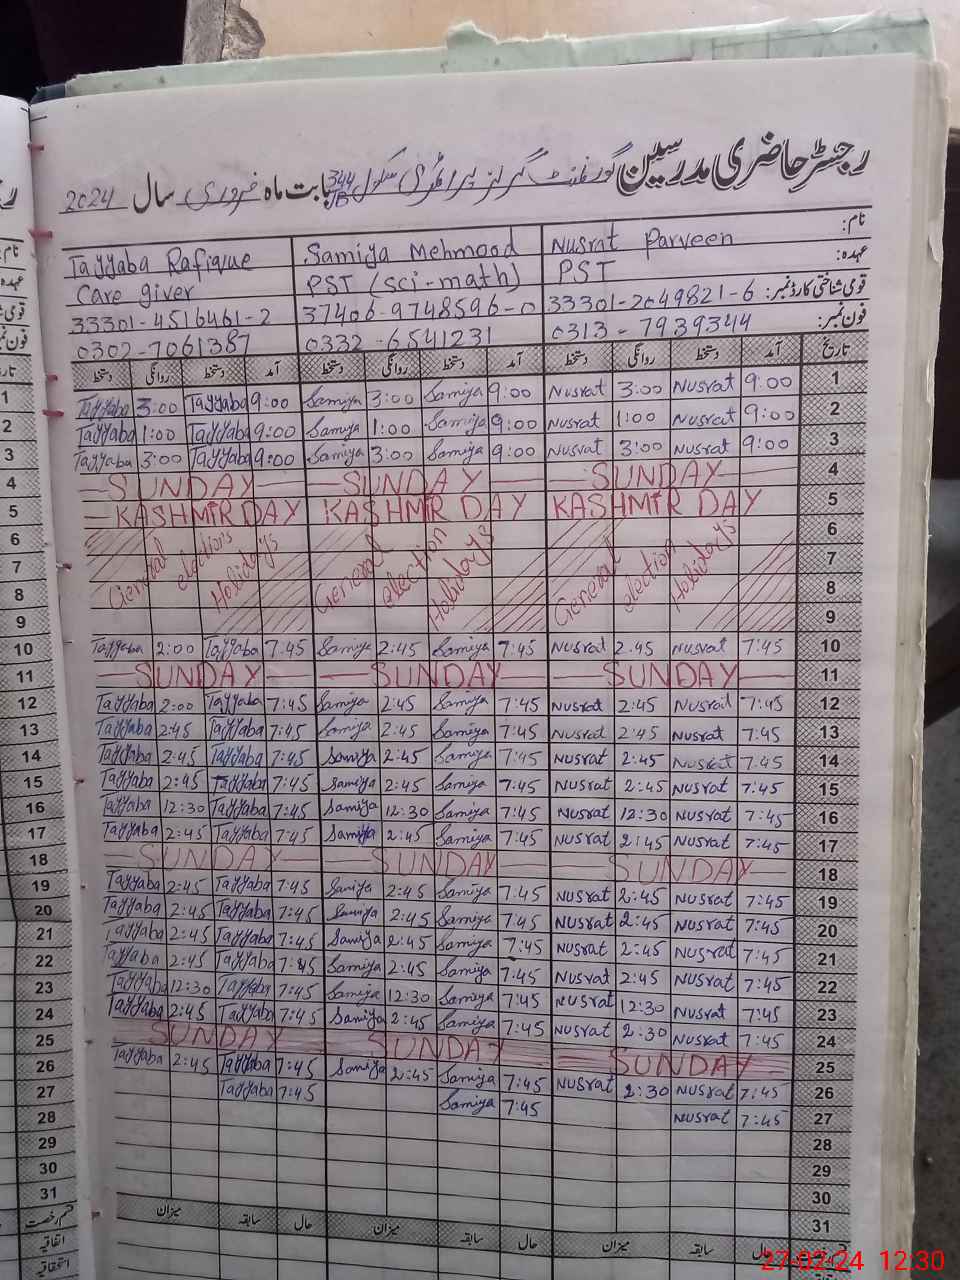 رجسٹر حاضری مدرسین گورنمنٹ گرلز پرائمری سکول 344 JB بابت ماہ فروری سال 2024
نام: Nusrat Parveen Samiya Mehmood Tayyaba Rafique
عہدہ: PST PST (sci-math) Care giver
قومی شناختی کارڈ نمبر: 33301-2049821-6 37406-9748596-0 33301-4516461-2
فون نمبر: 0313-7939344 0332-6541231 0302-7061387
تاریخ آمد دستخط روانگی دستخط آمد دستخط روانگی دستخط آمد دستخط روانگی دستخط
1 Tayyaba 3:00 Tayyaba 9:00 Samiya 3:00 Samiya 9:00 Nusrat 3:00 Nusrat 9:00 1
2 Tayyaba 1:00 Tayyaba 9:00 Samiya 1:00 Samiya 9:00 Nusrat 1:00 Nusrat 9:00 2
3 Tayyaba 3:00 Tayyaba 9:00 Samiya 3:00 Samiya 9:00 Nusrat 3:00 Nusrat 9:00 3
4 SUNDAY SUNDAY SUNDAY 4
5 KASHMIR DAY KASHMIR DAY KASHMIR DAY 5
6 6
7 General elections Holidays General election Holidays General election Holidays 7
8 8
9 9
10 Tayyaba 2:00 Tayyaba 7:45 Samiya 2:45 Samiya 7:45 Nusrat 2:45 Nusrat 7:45 10
11 SUNDAY SUNDAY SUNDAY 11
12 Tayyaba 2:00 Tayyaba 7:45 Samiya 2:45 Samiya 7:45 Nusrat 2:45 Nusrat 7:45 12
13 Tayyaba 2:45 Tayyaba 7:45 Samiya 2:45 Samiya 7:45 Nusrat 2:45 Nusrat 7:45 13
14 Tayyaba 2:45 Tayyaba 7:45 Samiya 2:45 Samiya 7:45 Nusrat 2:45 Nusrat 7:45 14
15 Tayyaba 2:45 Tayyaba 7:45 Samiya 2:45 Samiya 7:45 Nusrat 2:45 Nusrat 7:45 15
16 Tayyaba 12:30 Tayyaba 7:45 Samiya 12:30 Samiya 7:45 Nusrat 12:30 Nusrat 7:45 16
17 Tayyaba 2:45 Tayyaba 7:45 Samiya 2:45 Samiya 7:45 Nusrat 2:45 Nusrat 7:45 17
18 SUNDAY SUNDAY SUNDAY 18
19 Tayyaba 2:45 Tayyaba 7:45 Samiya 2:45 Samiya 7:45 Nusrat 2:45 Nusrat 7:45 19
20 Tayyaba 2:45 Tayyaba 7:45 Samiya 2:45 Samiya 7:45 Nusrat 2:45 Nusrat 7:45 20
21 Tayyaba 2:45 Tayyaba 7:45 Samiya 2:45 Samiya 7:45 Nusrat 2:45 Nusrat 7:45 21
22 Tayyaba 2:45 Tayyaba 7:45 Samiya 2:45 Samiya 7:45 Nusrat 2:45 Nusrat 7:45 22
23 Tayyaba 12:30 Tayyaba 7:45 Samiya 12:30 Samiya 7:45 Nusrat 12:30 Nusrat 7:45 23
24 Tayyaba 2:45 Tayyaba 7:45 Samiya 2:45 Samiya 7:45 Nusrat 2:30 Nusrat 7:45 24
25 SUNDAY SUNDAY SUNDAY 25
26 Tayyaba 2:45 Tayyaba 7:45 Samiya 2:45 Samiya 7:45 Nusrat 2:30 Nusrat 7:45 26
27 Tayyaba 7:45 Samiya 7:45 Nusrat 7:45 27
28 28
29 29
30 30
31 31
حال سابقہ میزان حال سابقہ میزان حال سابقہ میزان
قسم رخصت
اتفاقیہ
استحقاقیہ
27-02-24 12:30